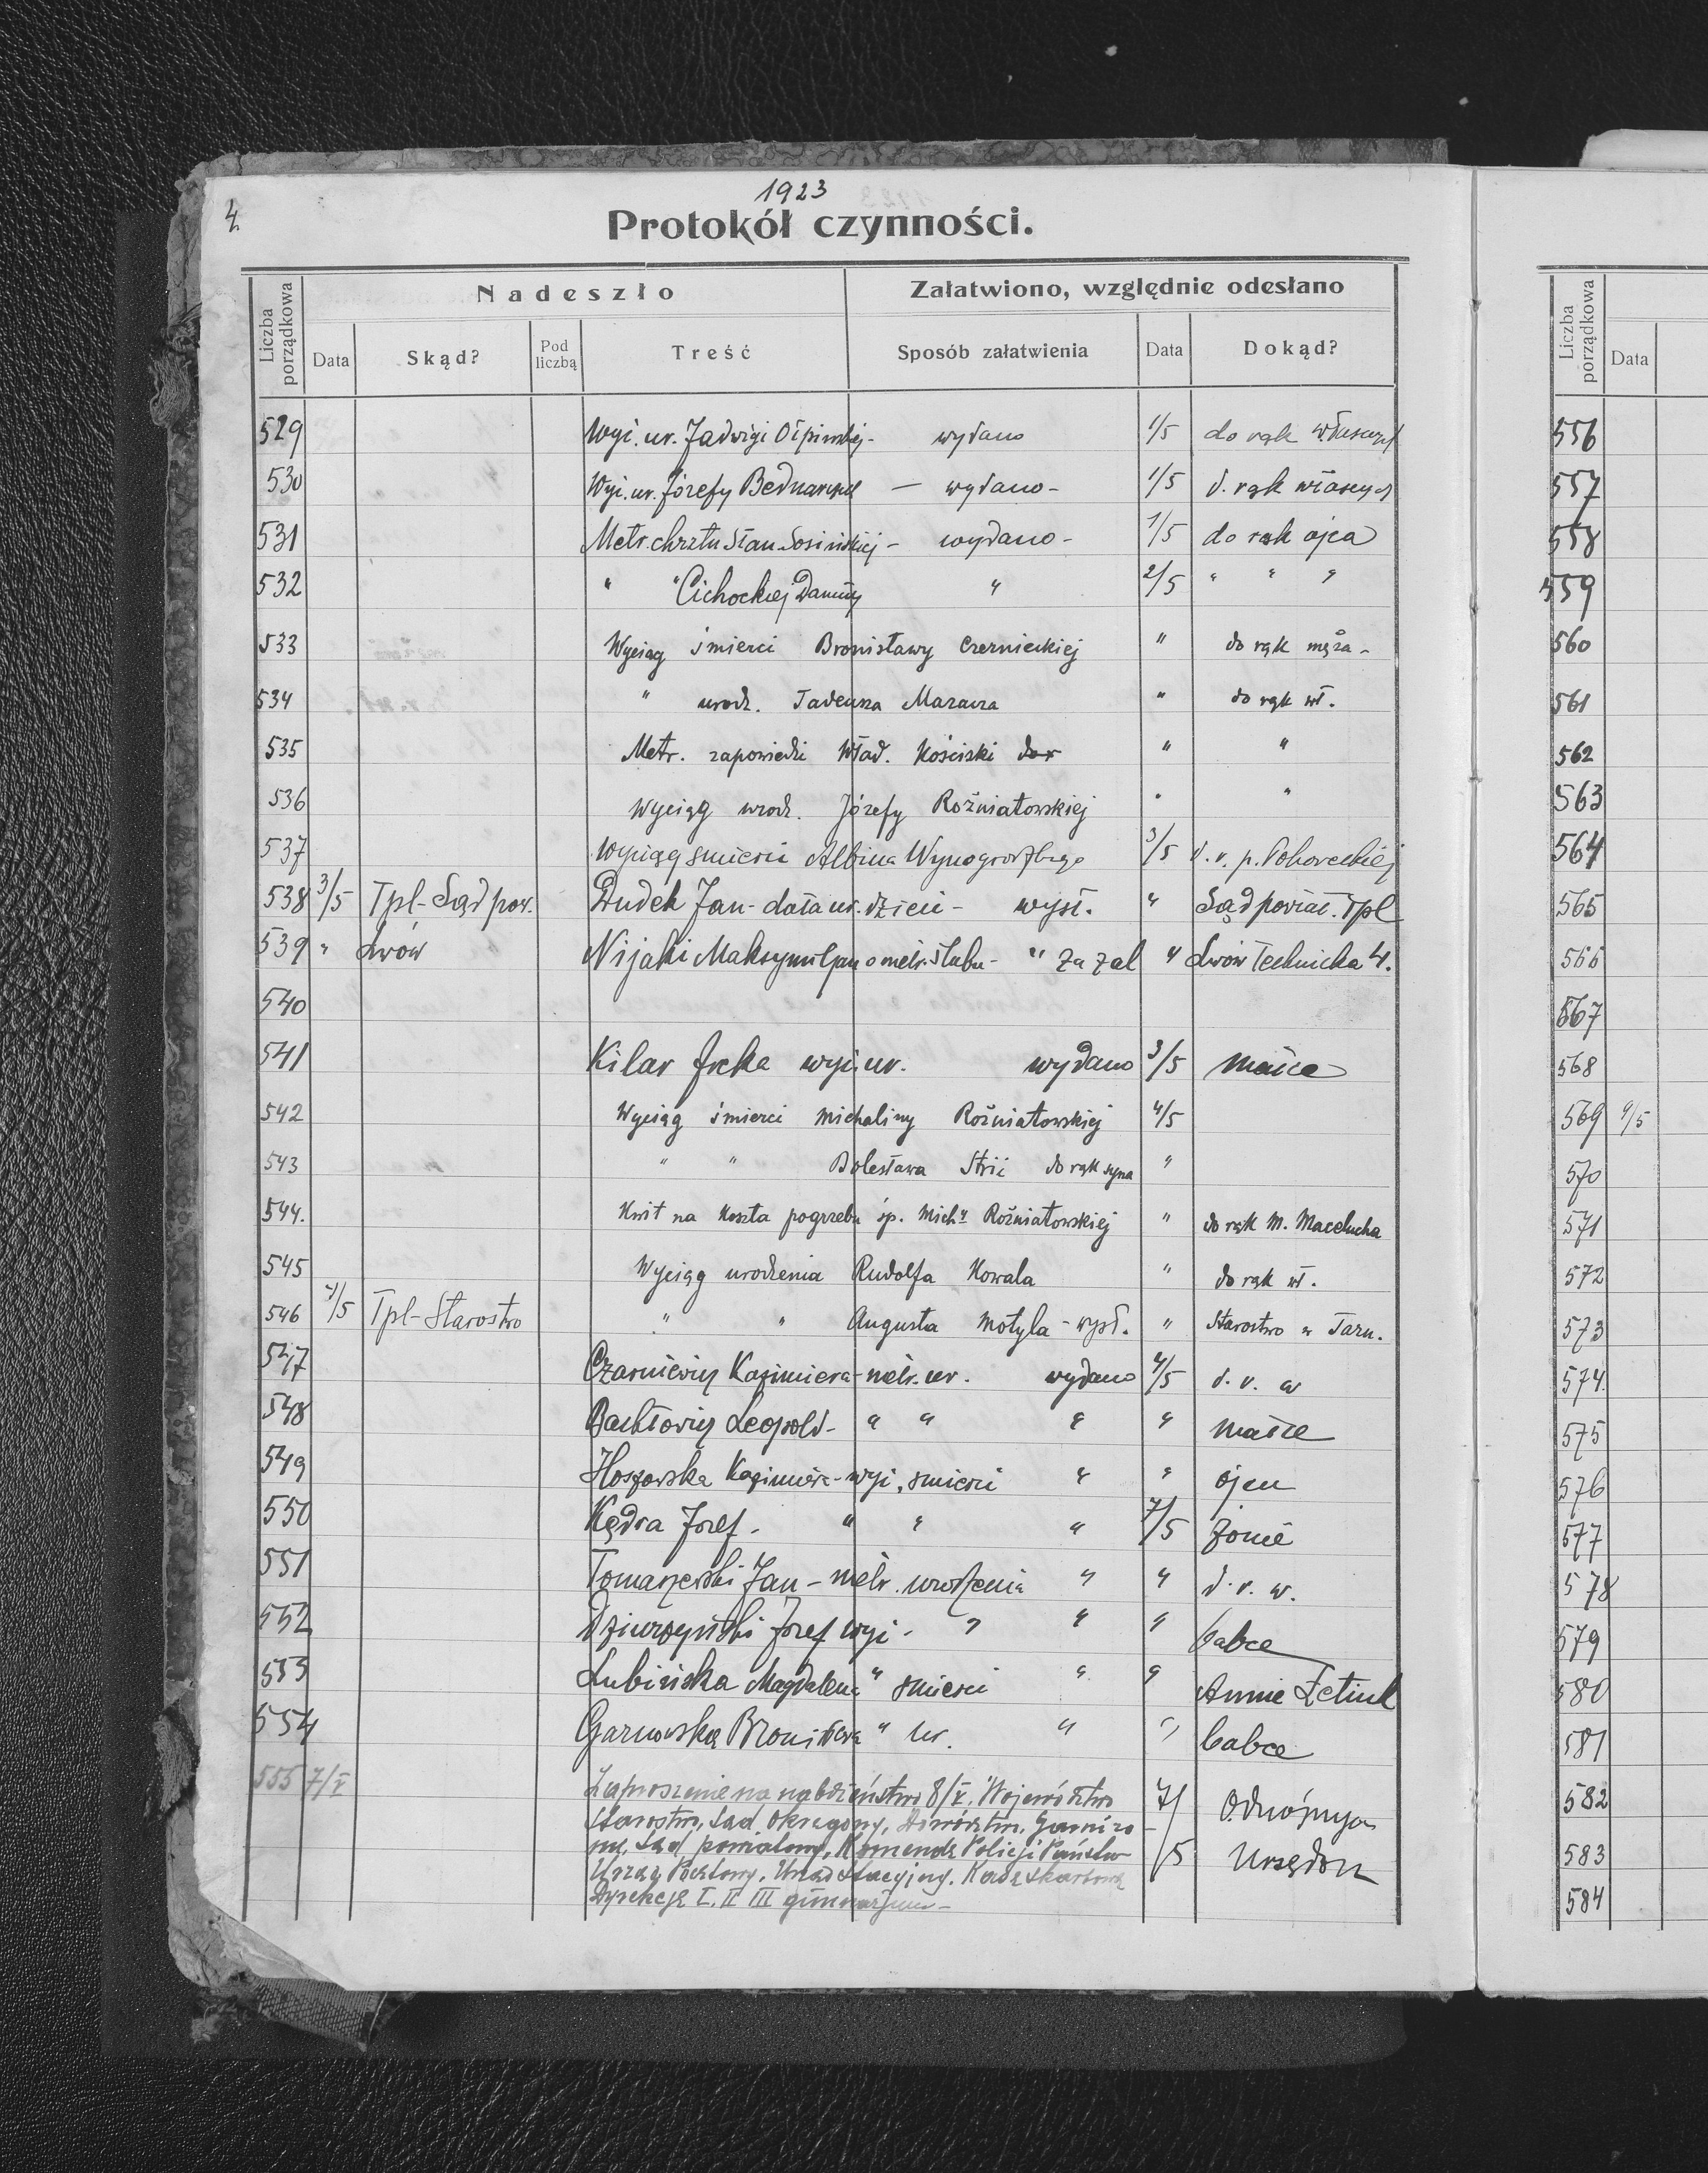 4.
1923
Protokół czynności.
Liczba porządkowa
Nadeszło
Załatwiono, względnie odesłano
Data
Skąd?
Pod liczbą
Treść
Sposób załatwienia
Data
Dokąd?
529 Wyi. ur. Jadwigi - wydano 1/5 do rąk
530 Wyi. ur. Józefy — wydano - 1/5 d. rąk
531 Metr. chrztu Stan. Sosińskiej - wydano - 1/5 do rąk ojca
532 " " Cichockiej Danuty " 2/5 " " "
533 Wyciąg śmierci Bronisławy Czernieckiej " do rąk męża -
534 " urodz. Tadeusza Mazura " do rąk wł.
535 Metr. zapowiedzi Wład. Kościski " "
536 Wyciąg urodz. Józefy Rożniatowskiej " "
537 Wyciąg śmierci Albina 3/5 d. r. p.
538 3/5 Tpl - Sąd pow. Dudek Jan - data ur. dzieci - wysł. " Sąd powiat. Tpl
539 " Lwów Nijaki Maksymiljan o metr. ślubu - " za zal " Lwów Technicka 4.
540
541 Kilar wyi. ur. wydano 3/5 matce
542 Wyciąg śmierci Michaliny Rożniatowskiej 4/5
543 " " Bolesława Strii do rąk syna "
544. Kwit na koszta pogrzebu śp. Mich. Rożniatowskiej " do rąk M. Macelucha
545 Wyciąg urodzenia Rudolfa Kowala " do rąk wł.
546 4/5 Tpl - Starostwo " " Augusta Motyla - wysł. " Starostwo w Tarn.
547 Czarniewicz Kazimiera - metr. ur. wydano 4/5 d. r. w
548 Leopold - " " " " matce
549 Hoszowska Kazimiera - wyi. śmierci " " ojcu
550 Kędra Józef. " " " 7/5 żonie
551 Tomaszewski Jan - metr. urodzenia " " d. r. w.
552 Józef wyi. " " " babce
553 Lubińska Magdalena " śmierci " " Annie
554 Bronisława " ur. " " babce
555 7/V Zaproszenie na nabożeństwo 8/V. Województwo 7/5 Odnośnym
Starostwo, Sąd Okręgowy, Garnizo-
nu, Sąd powiatowy, Komenda Policji Państw
Urząd Pocztowy, Urząd Stacyjny. Skarbowa
Dyrekcję I. II III gimnazjum - Urzędom
Liczba porządkowa
Data
556
557
558
559
560
561
562
563
564
565
566
567
568
569 4/5
570
571
572
573
574.
575
576
577
578
579
580
581
582
583
584